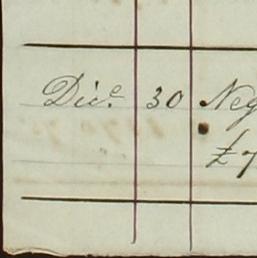 Dec.e 30 Neg
£7